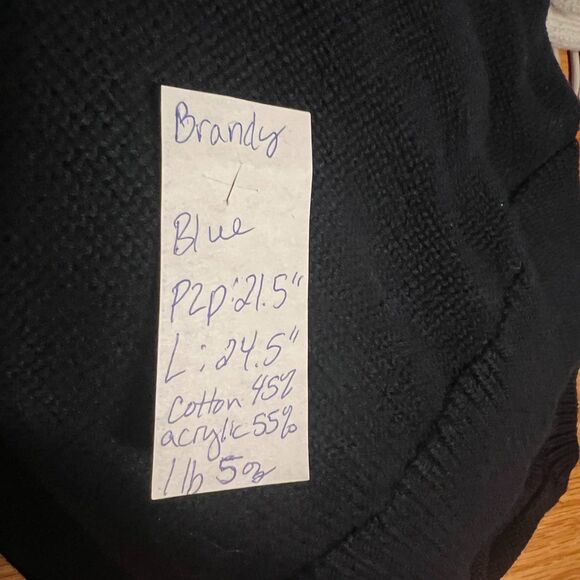 Brandy
Blue
P2P:21.5"
L:24.5"
Cotton 45%
acrylic 55%
1 lb 5oz